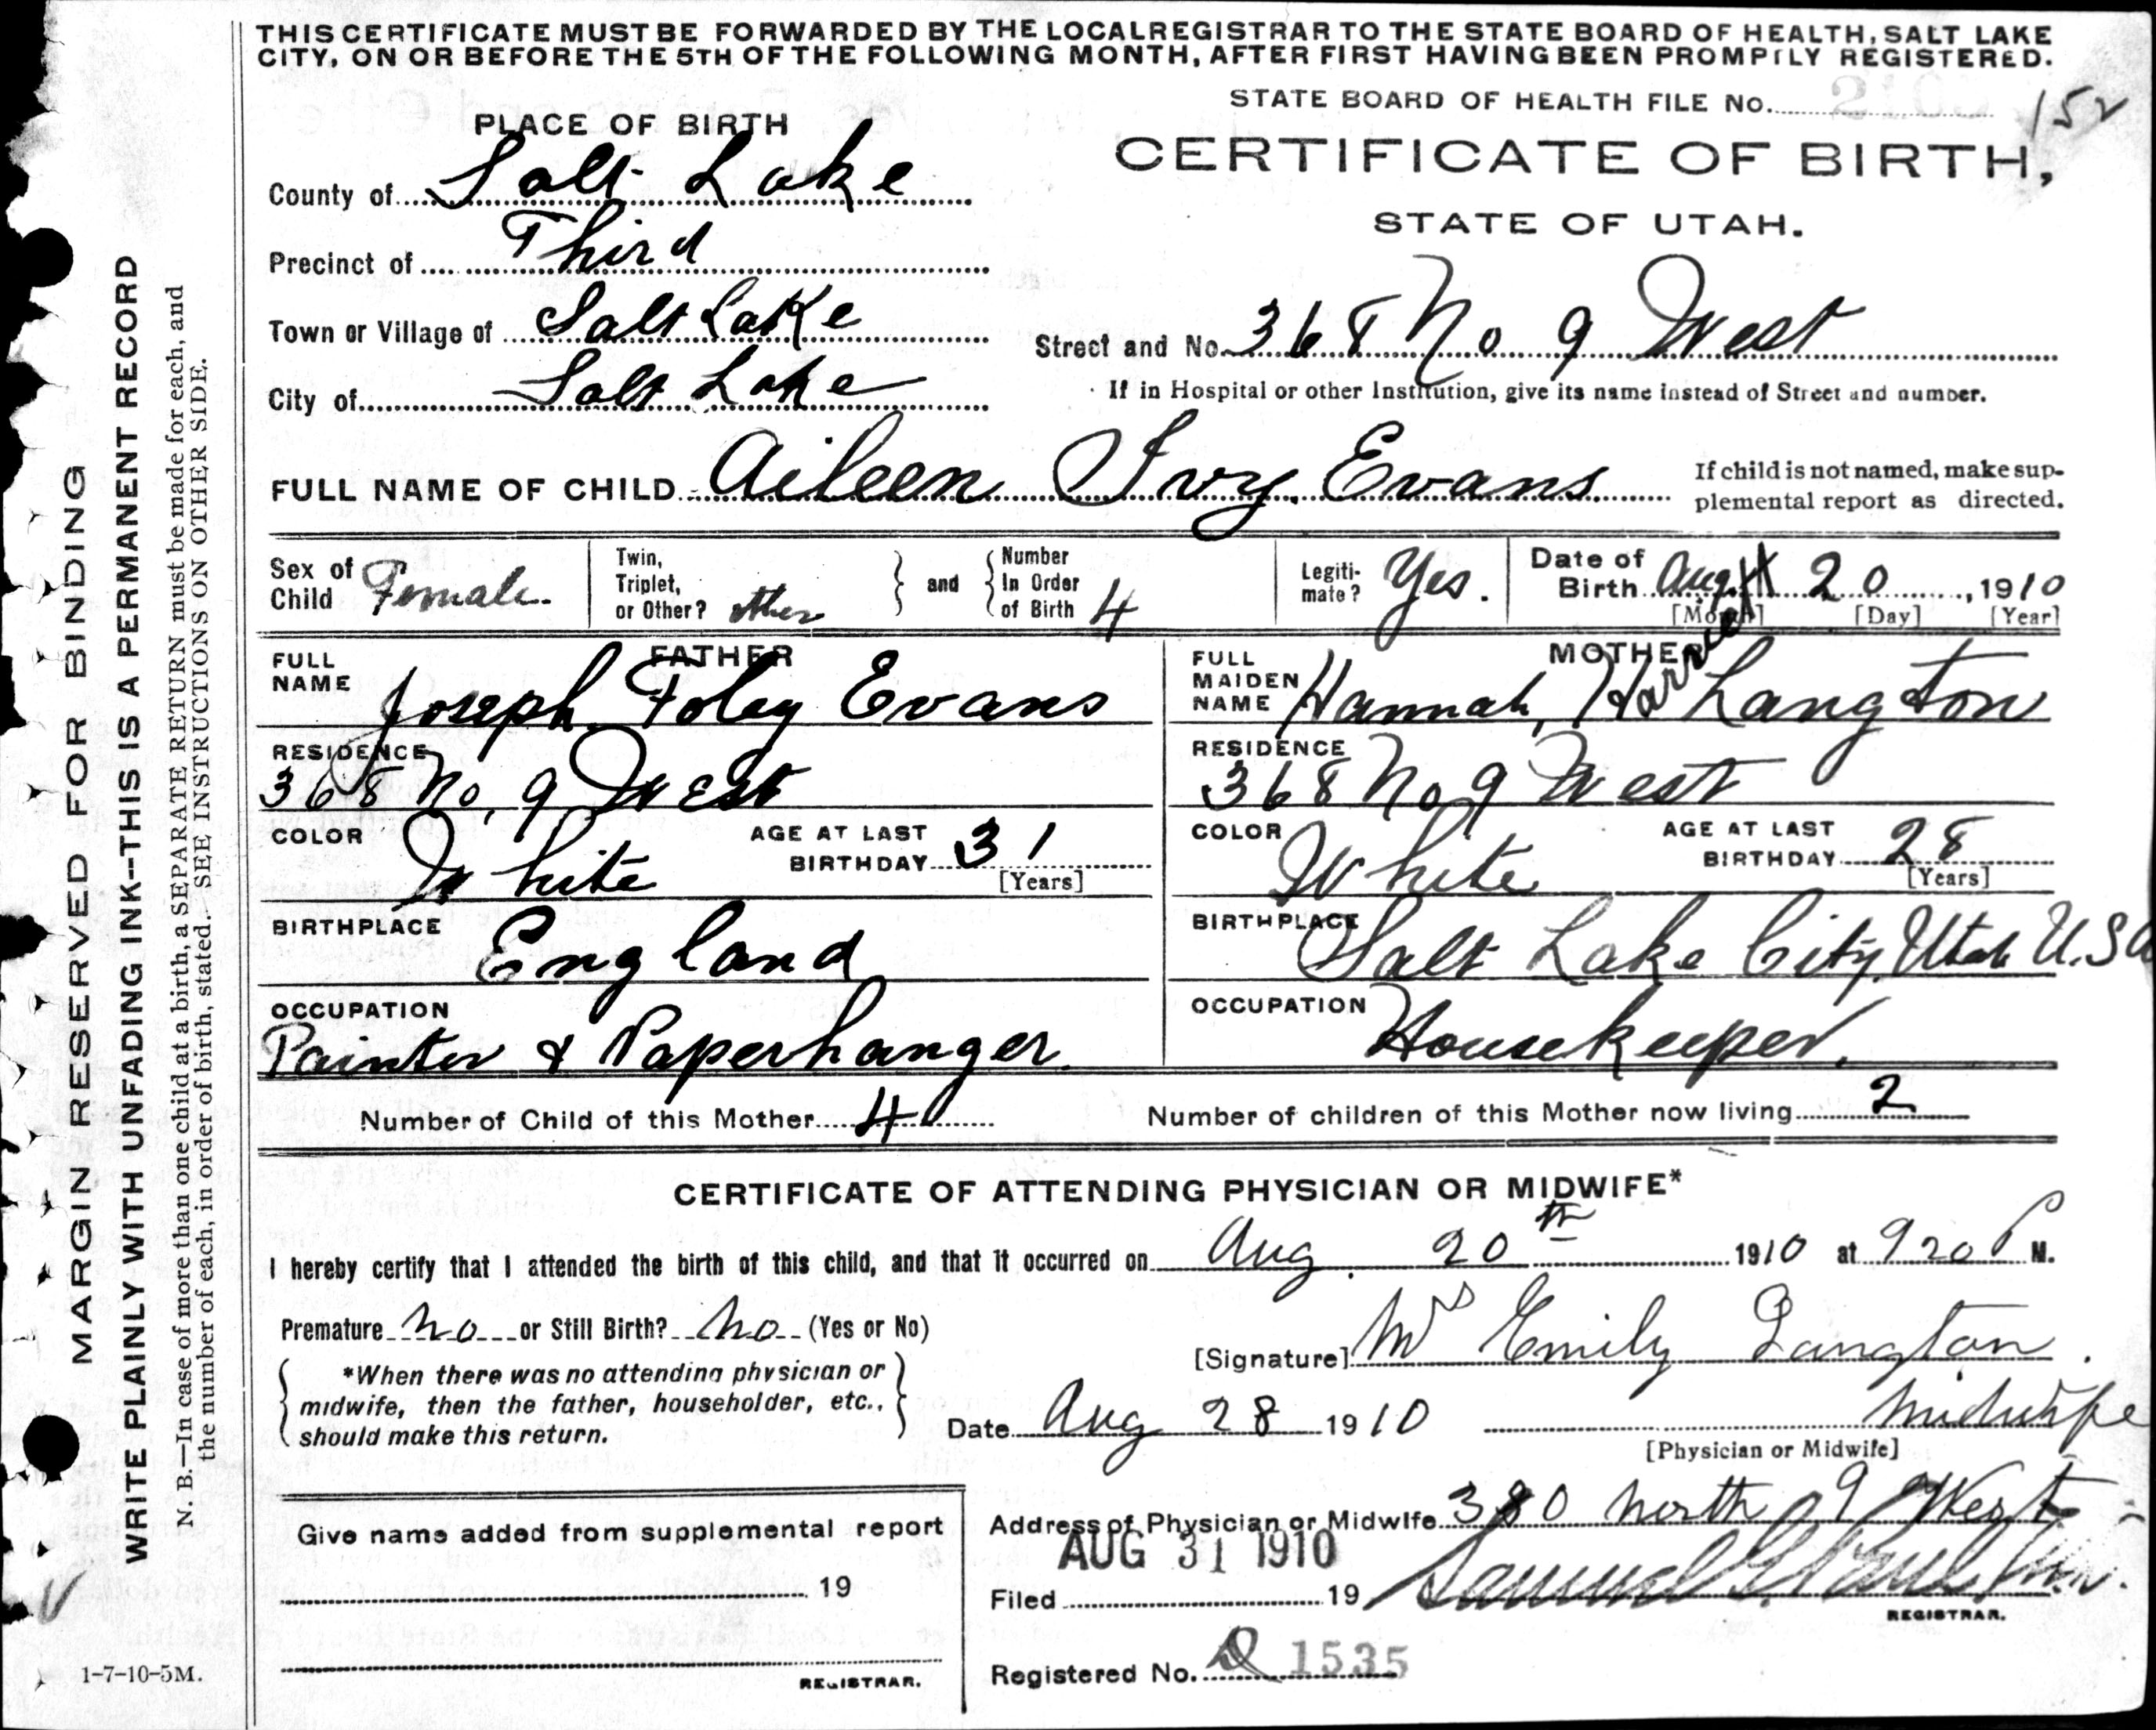 THIS CERTIFICATE MUST BE FORWARDED BY THE LOCAL REGISTRAR TO THE STATE BOARD OF HEALTH, SALT LAKE
CITY, ON OR BEFORE THE 5TH OF THE FOLLOWING MONTH, AFTER FIRST HAVING BEEN PROMPTLY REGISTERED.
STATE BOARD OF HEALTH FILE No.
152
PLACE OF BIRTH
CERTIFICATE OF BIRTH,
STATE OF UTAH.
County of Salt Lake
Precinct of Third
Town or Village of Salt Lake
Street and No. 368 No 9 West
City of Salt Lake
If in Hospital or other Institution, give its name instead of Street and number.
FULL NAME OF CHILD Aileen Ivy Evans
If child is not named, make sup-
plemental report as directed.
Sex of Child Female
Twin, Triplet, or Other? other
and
Number In Order of Birth 4
Legiti-
mate? Yes.
Date of Birth Aug 20, 1910
[Month] [Day] [Year]
FATHER
FULL NAME Joseph Foley Evans
RESIDENCE
368 No, 9 West
COLOR White
AGE AT LAST BIRTHDAY 31
[Years]
BIRTHPLACE England
OCCUPATION
Painter & Paperhanger.
MOTHER
FULL MAIDEN NAME Hannah, Harriett Langton
RESIDENCE
368 No 9 West
COLOR White
AGE AT LAST BIRTHDAY 28
[Years]
BIRTHPLACE Salt Lake City, Utah U.S.A
OCCUPATION Housekeeper.
Number of Child of this Mother 4
Number of children of this Mother now living 2
CERTIFICATE OF ATTENDING PHYSICIAN OR MIDWIFE*
I hereby certify that I attended the birth of this child, and that it occurred on Aug. 20th 1910 at 920 P M.
Premature No or Still Birth? No (Yes or No)
[Signature] Mrs Emily Langton.
*When there was no attending physician or
midwife, then the father, householder, etc.,
should make this return.
Date Aug 28 1910
Midwife
[Physician or Midwife]
Address of Physician or Midwife 380 North 9 West
Give name added from supplemental report
19
REGISTRAR.
AUG 31 1910
Filed 19
Samuel G. Paul
REGISTRAR.
Registered No. 1535
MARGIN RESERVED FOR BINDING
WRITE PLAINLY WITH UNFADING INK--THIS IS A PERMANENT RECORD
N. B.—In case of more than one child at a birth, a SEPARATE RETURN must be made for each, and
the number of each, in order of birth, stated. SEE INSTRUCTIONS ON OTHER SIDE.
1-7-10-5M.